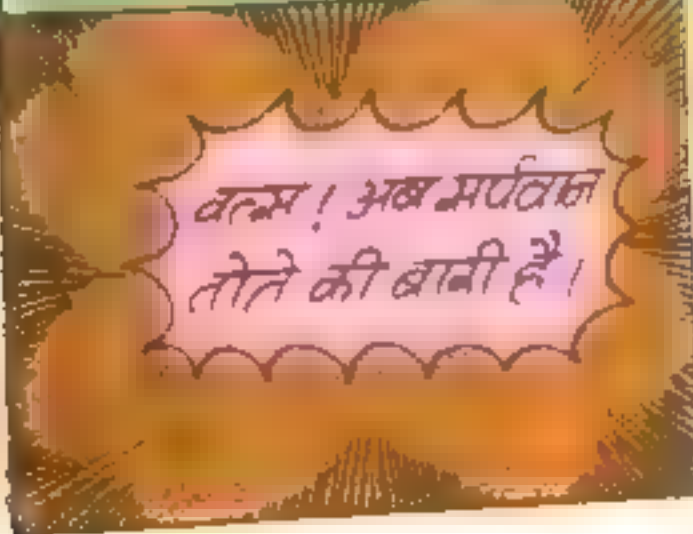 वत्स! अब सर्पराज
तोते की बारी है।